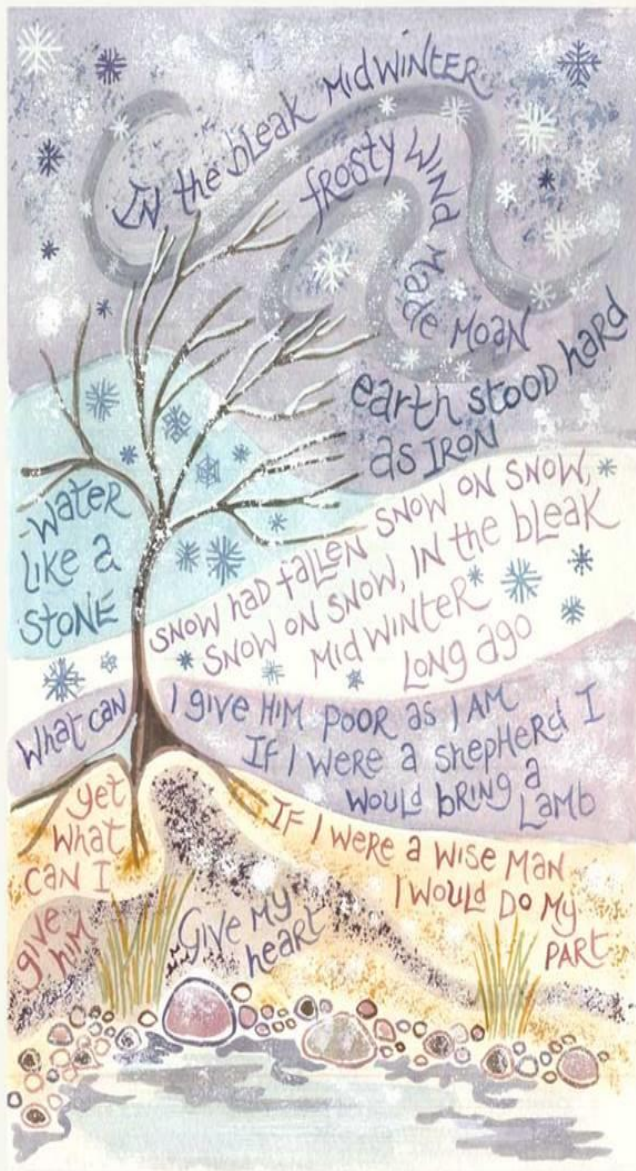 IN the bleak MIDWINTER
fROSTY WIND made MOAN
earth stood hard
as IRON
WATER
LIKE a
STONE
SNOW had fallen SNOW ON SNOW,
SNOW ON SNOW, IN the bleak
MID WINTER
LONG ago
What can
I gIVE HIM pooR as I AM
If I WERE a shepHERd I
would bRING a
LaMb
yet
what
can I
gIVE
HIM
IF I WERE a WISE MAN
I WOULD DO My
PART
GIVE MY
heart